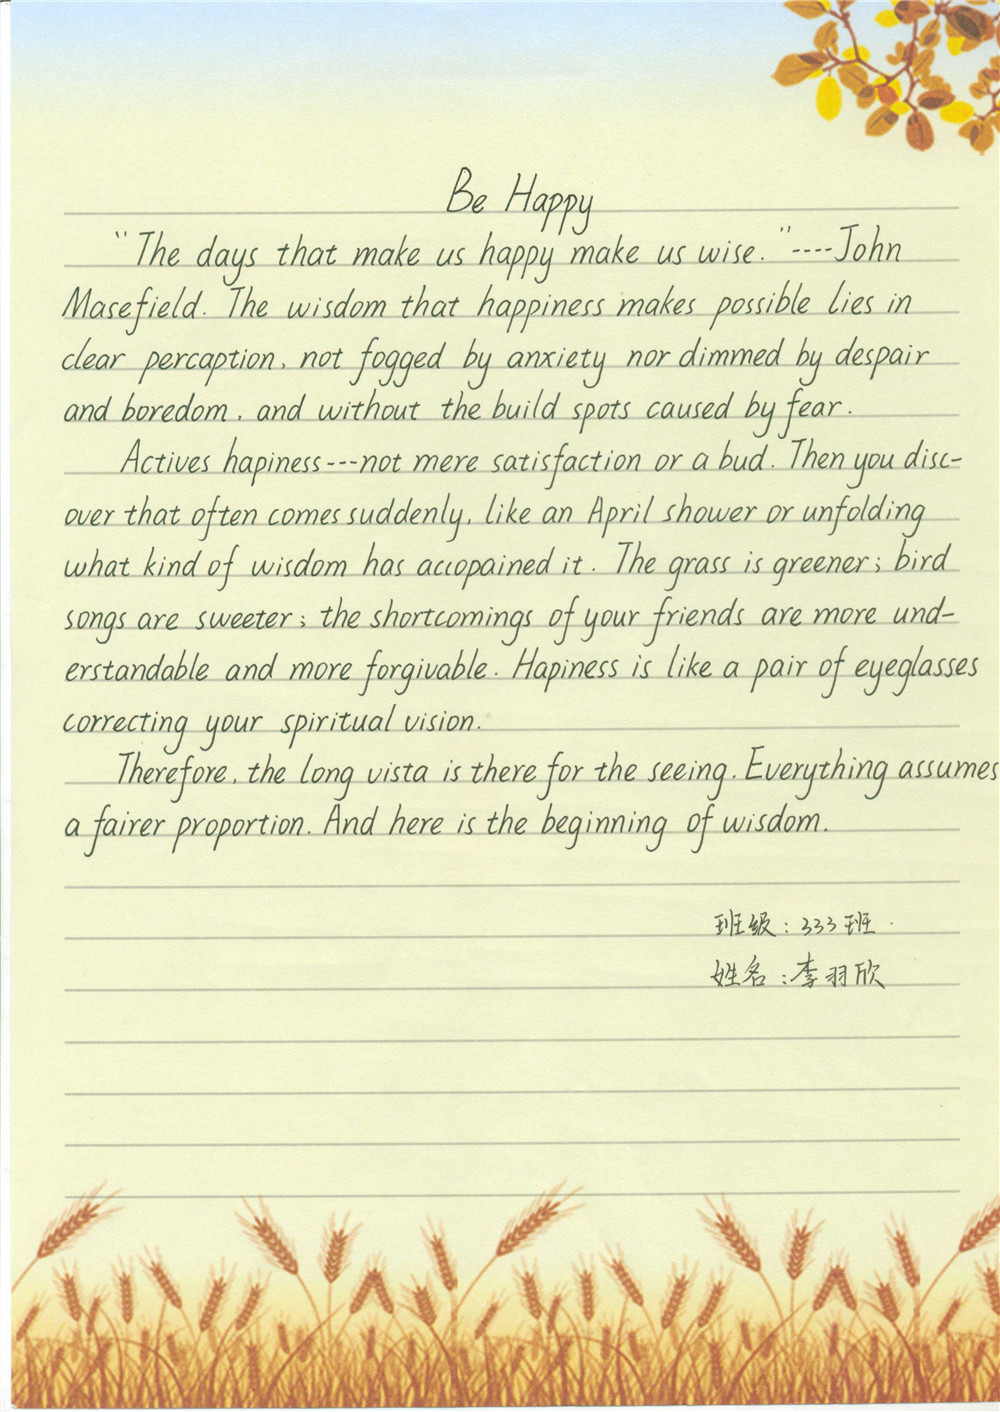 Be Happy
"The days that make us happy make us wise."----John
Masefield. The wisdom that happiness makes possible lies in
clear percaption, not fogged by anxiety nor dimmed by despair
and boredom, and without the build spots caused by fear.
Actives hapiness---not mere satisfaction or a bud. Then you disc-
over that often comes suddenly, like an April shower or unfolding
what kind of wisdom has accopained it. The grass is greener; bird
songs are sweeter; the shortcomings of your friends are more und-
erstandable and more forgivable. Hapiness is like a pair of eyeglasses
correcting your spiritual vision.
Therefore, the long vista is there for the seeing. Everything assumes
a fairer proportion. And here is the beginning of wisdom.
班级:333班.
姓名:李羽欣